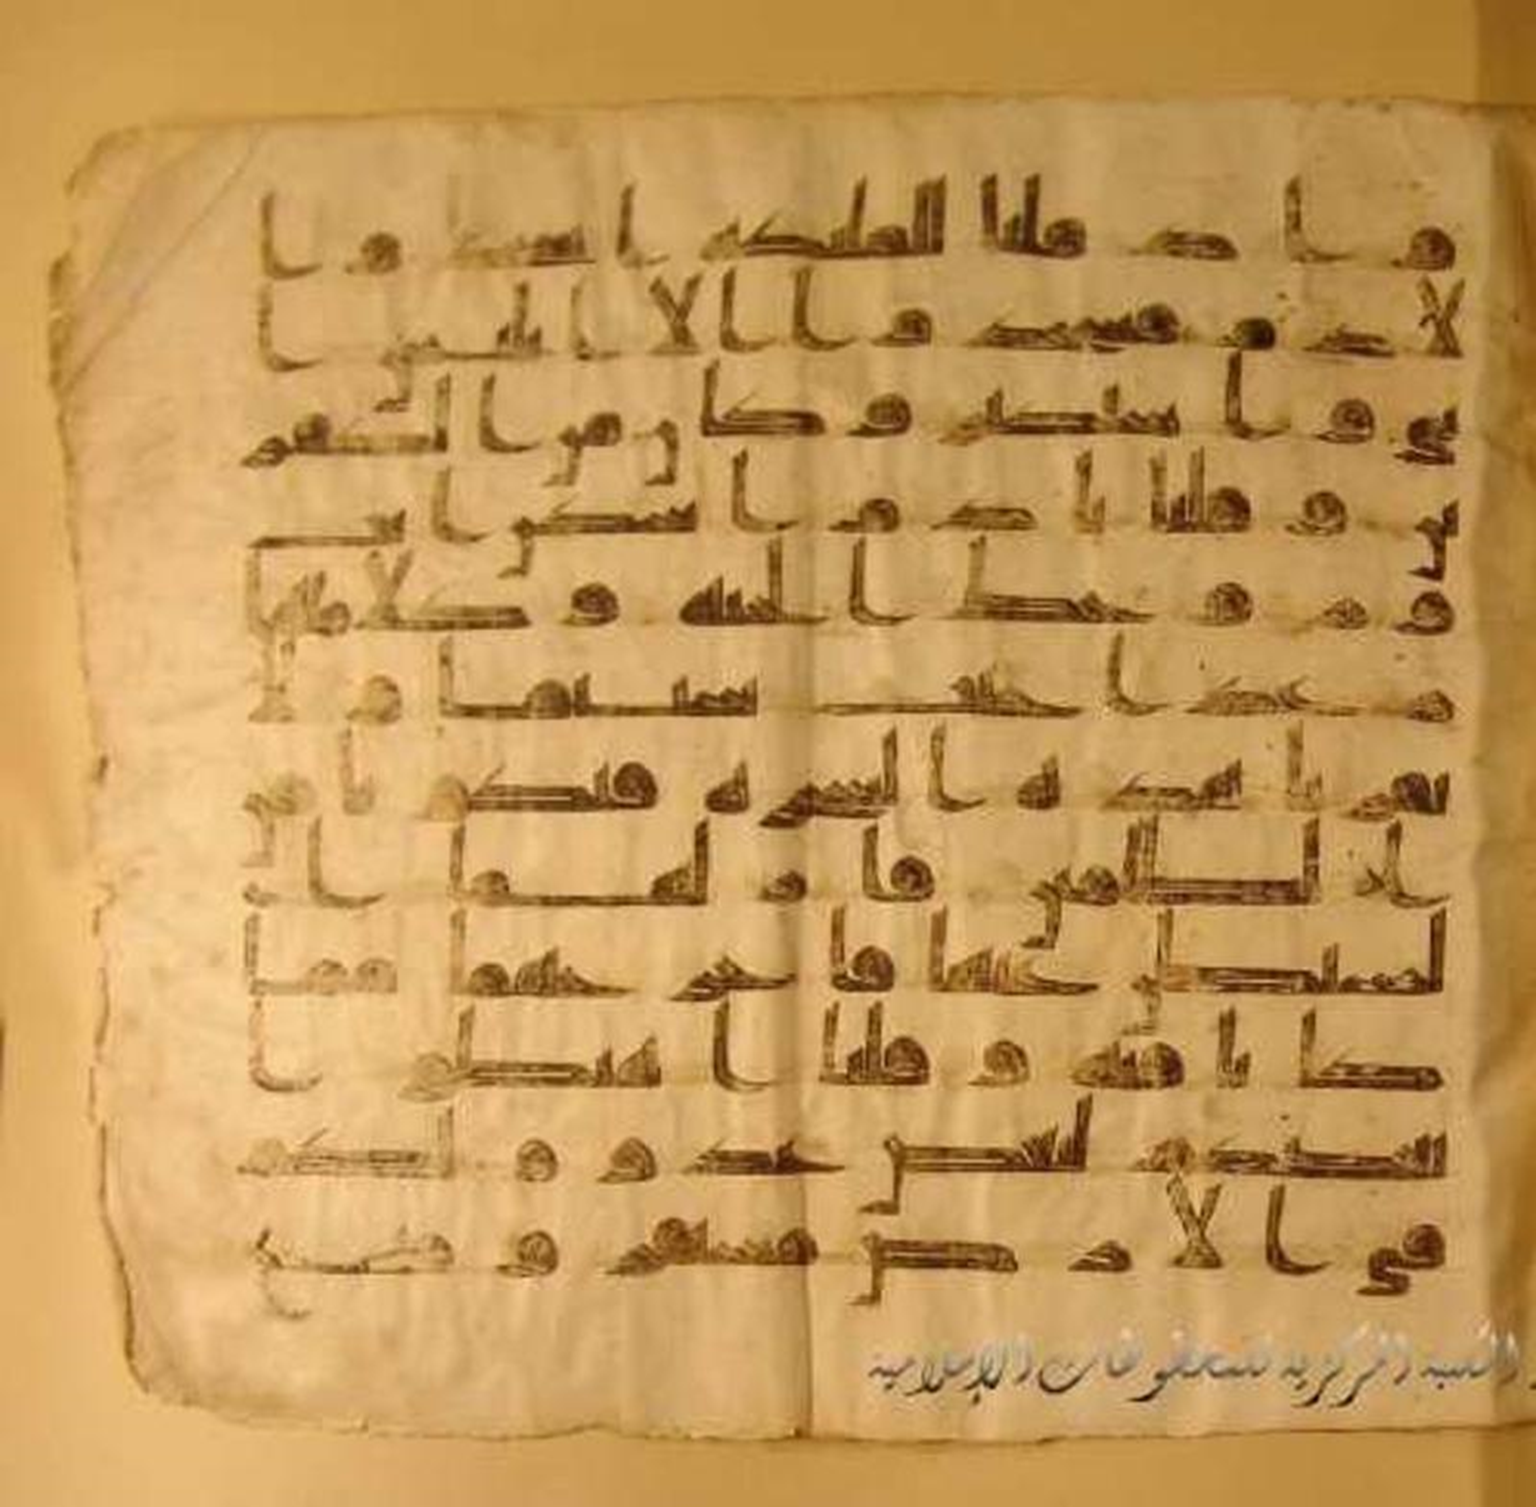 واذ قلنا للملئكة اسجدوا
لادم فسجدوا الا ابليس ا
بى واستكبر وكان من الكفر
ين وقلنا يادم اسكن انت
وزوجك الجنة وكلا منها
رغدا حيث شئتما ولا
تقربا هذه الشجرة فتكونا من
الظلمين فازلهما ا
لشيطن عنها فاخرجهما مما
كانا فيه وقلنا اهبطوا
بعضكم لبعض عدو ولكم
في الارض مستقر ومتع
المكتبة المركزية للمخطوطات الإسلامية